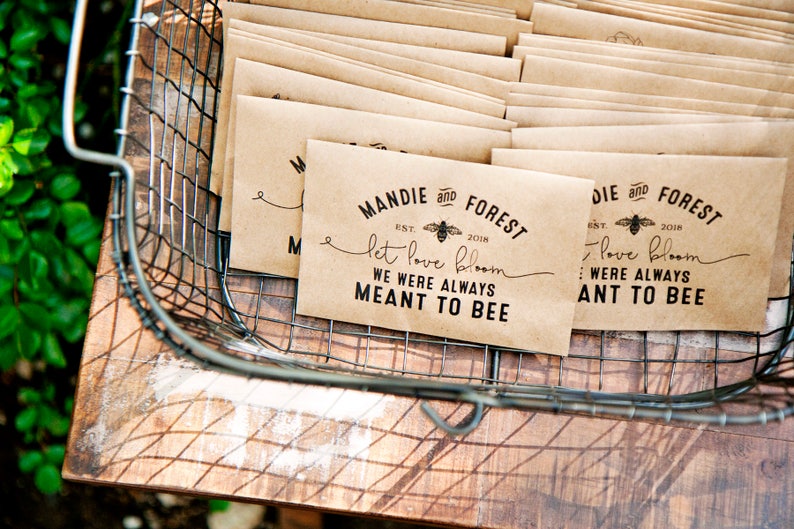 MANDIE and FOREST
EST. 2018
let love bloom
WE WERE ALWAYS
MEANT TO BEE
MANDIE and FOREST
EST. 2018
let love bloom
E WERE ALWAYS
ANT TO BEE
MA
M